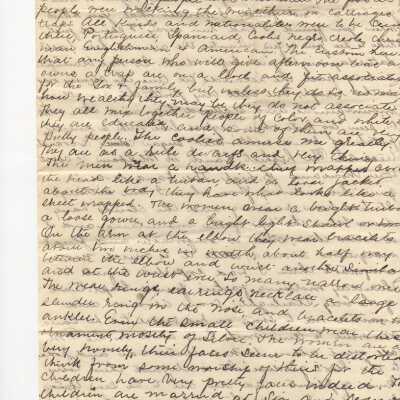 people were walking the
traps All kinds and nationalities were to be seen
there, Portuguese, Spaniard, Coolie negro, creole,
man Englishman & American. The Custom here
that any person who will give afternoon teas and
owns a trap are on a level and get associated
for the Gov & family, but unless they do so, no
how wealthy they may be they do not associate
They all mix together people of color and white
they are educated and some of them are very
pretty people. The coolies amuse me greatly
They are but a little dwarfs and very thin
The men wear a wrapped around
the head like a turban, and a loose jacket
about the body they have what looks like a
sheet wrapped. The women wear a bright
a loose gown, and a bright light
On the arm at the elbow they wear bracelets
about two inches in width, about half way
between the elbow and wrist another similar
and at the wrist one to many narrow ones
The wear rings, earrings, necklace, a large
slender ring in the nose and bracelets on the
ankles. Even the small children wear these
mostly of silver. The women are
very homely, their faces seem to be distorted
think from some marking of theirs for the
children have very pretty faces indeed the
children are married at